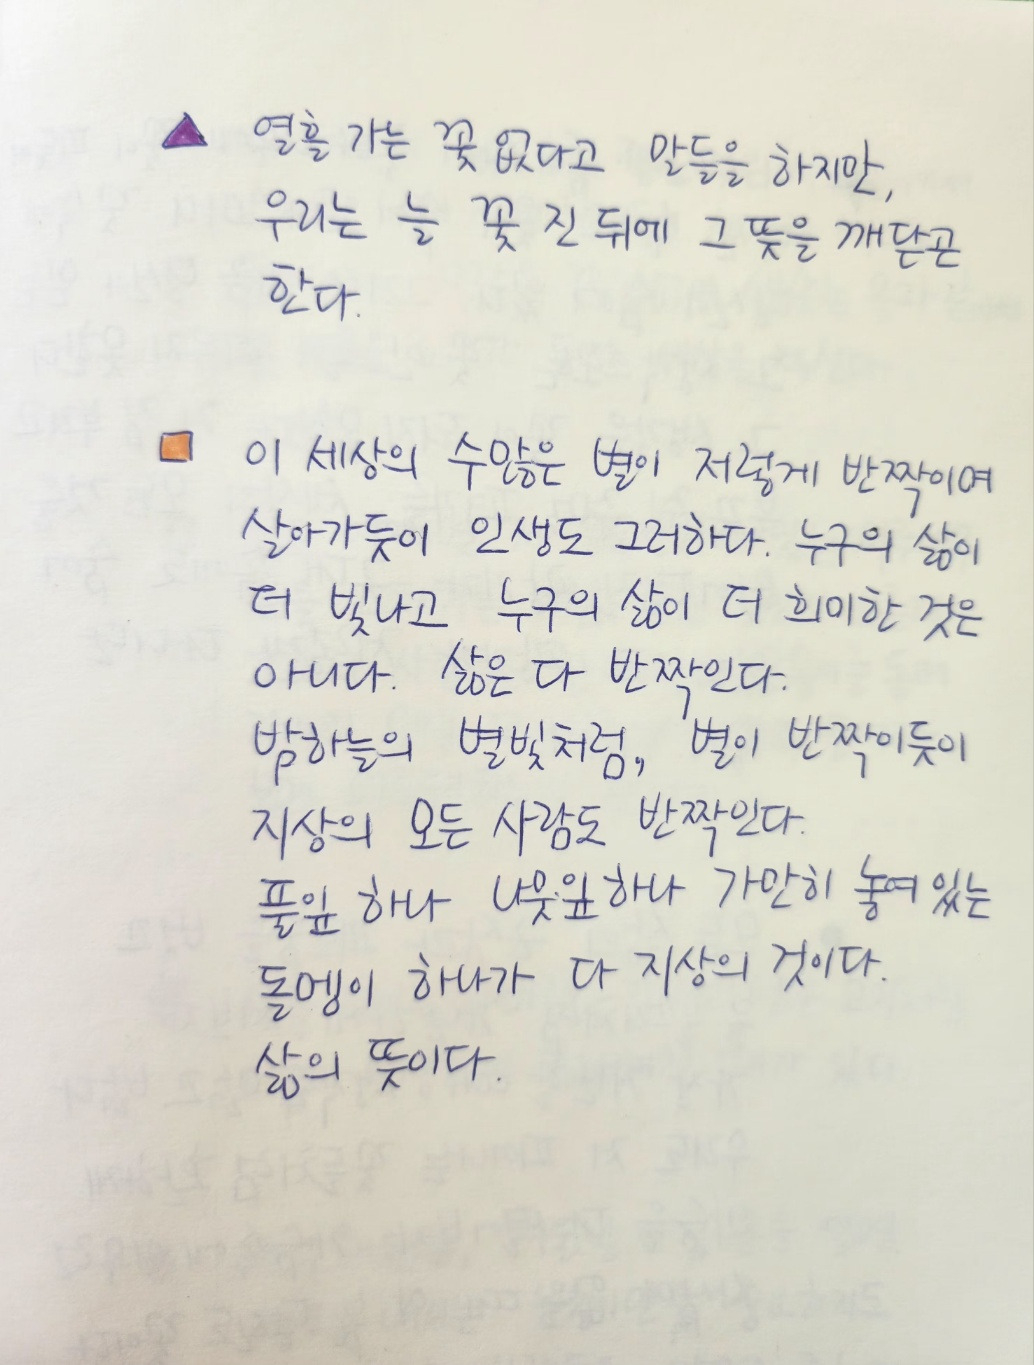 열흘 가는 꽃 없다고 말들을 하지만,
우리는 늘 꽃 진 뒤에 그 뜻을 깨닫곤
한다.
이 세상의 수많은 별이 저렇게 반짝이며
살아가듯이 인생도 그러하다. 누구의 삶이
더 빛나고 누구의 삶이 더 희미한 것은
아니다. 삶은 다 반짝인다.
밤하늘의 별빛처럼, 별이 반짝이듯이
지상의 모든 사람도 반짝인다.
풀잎 하나 나뭇잎하나 가만히 놓여있는
돌멩이 하나가 다 지상의 것이다.
삶의 뜻이다.